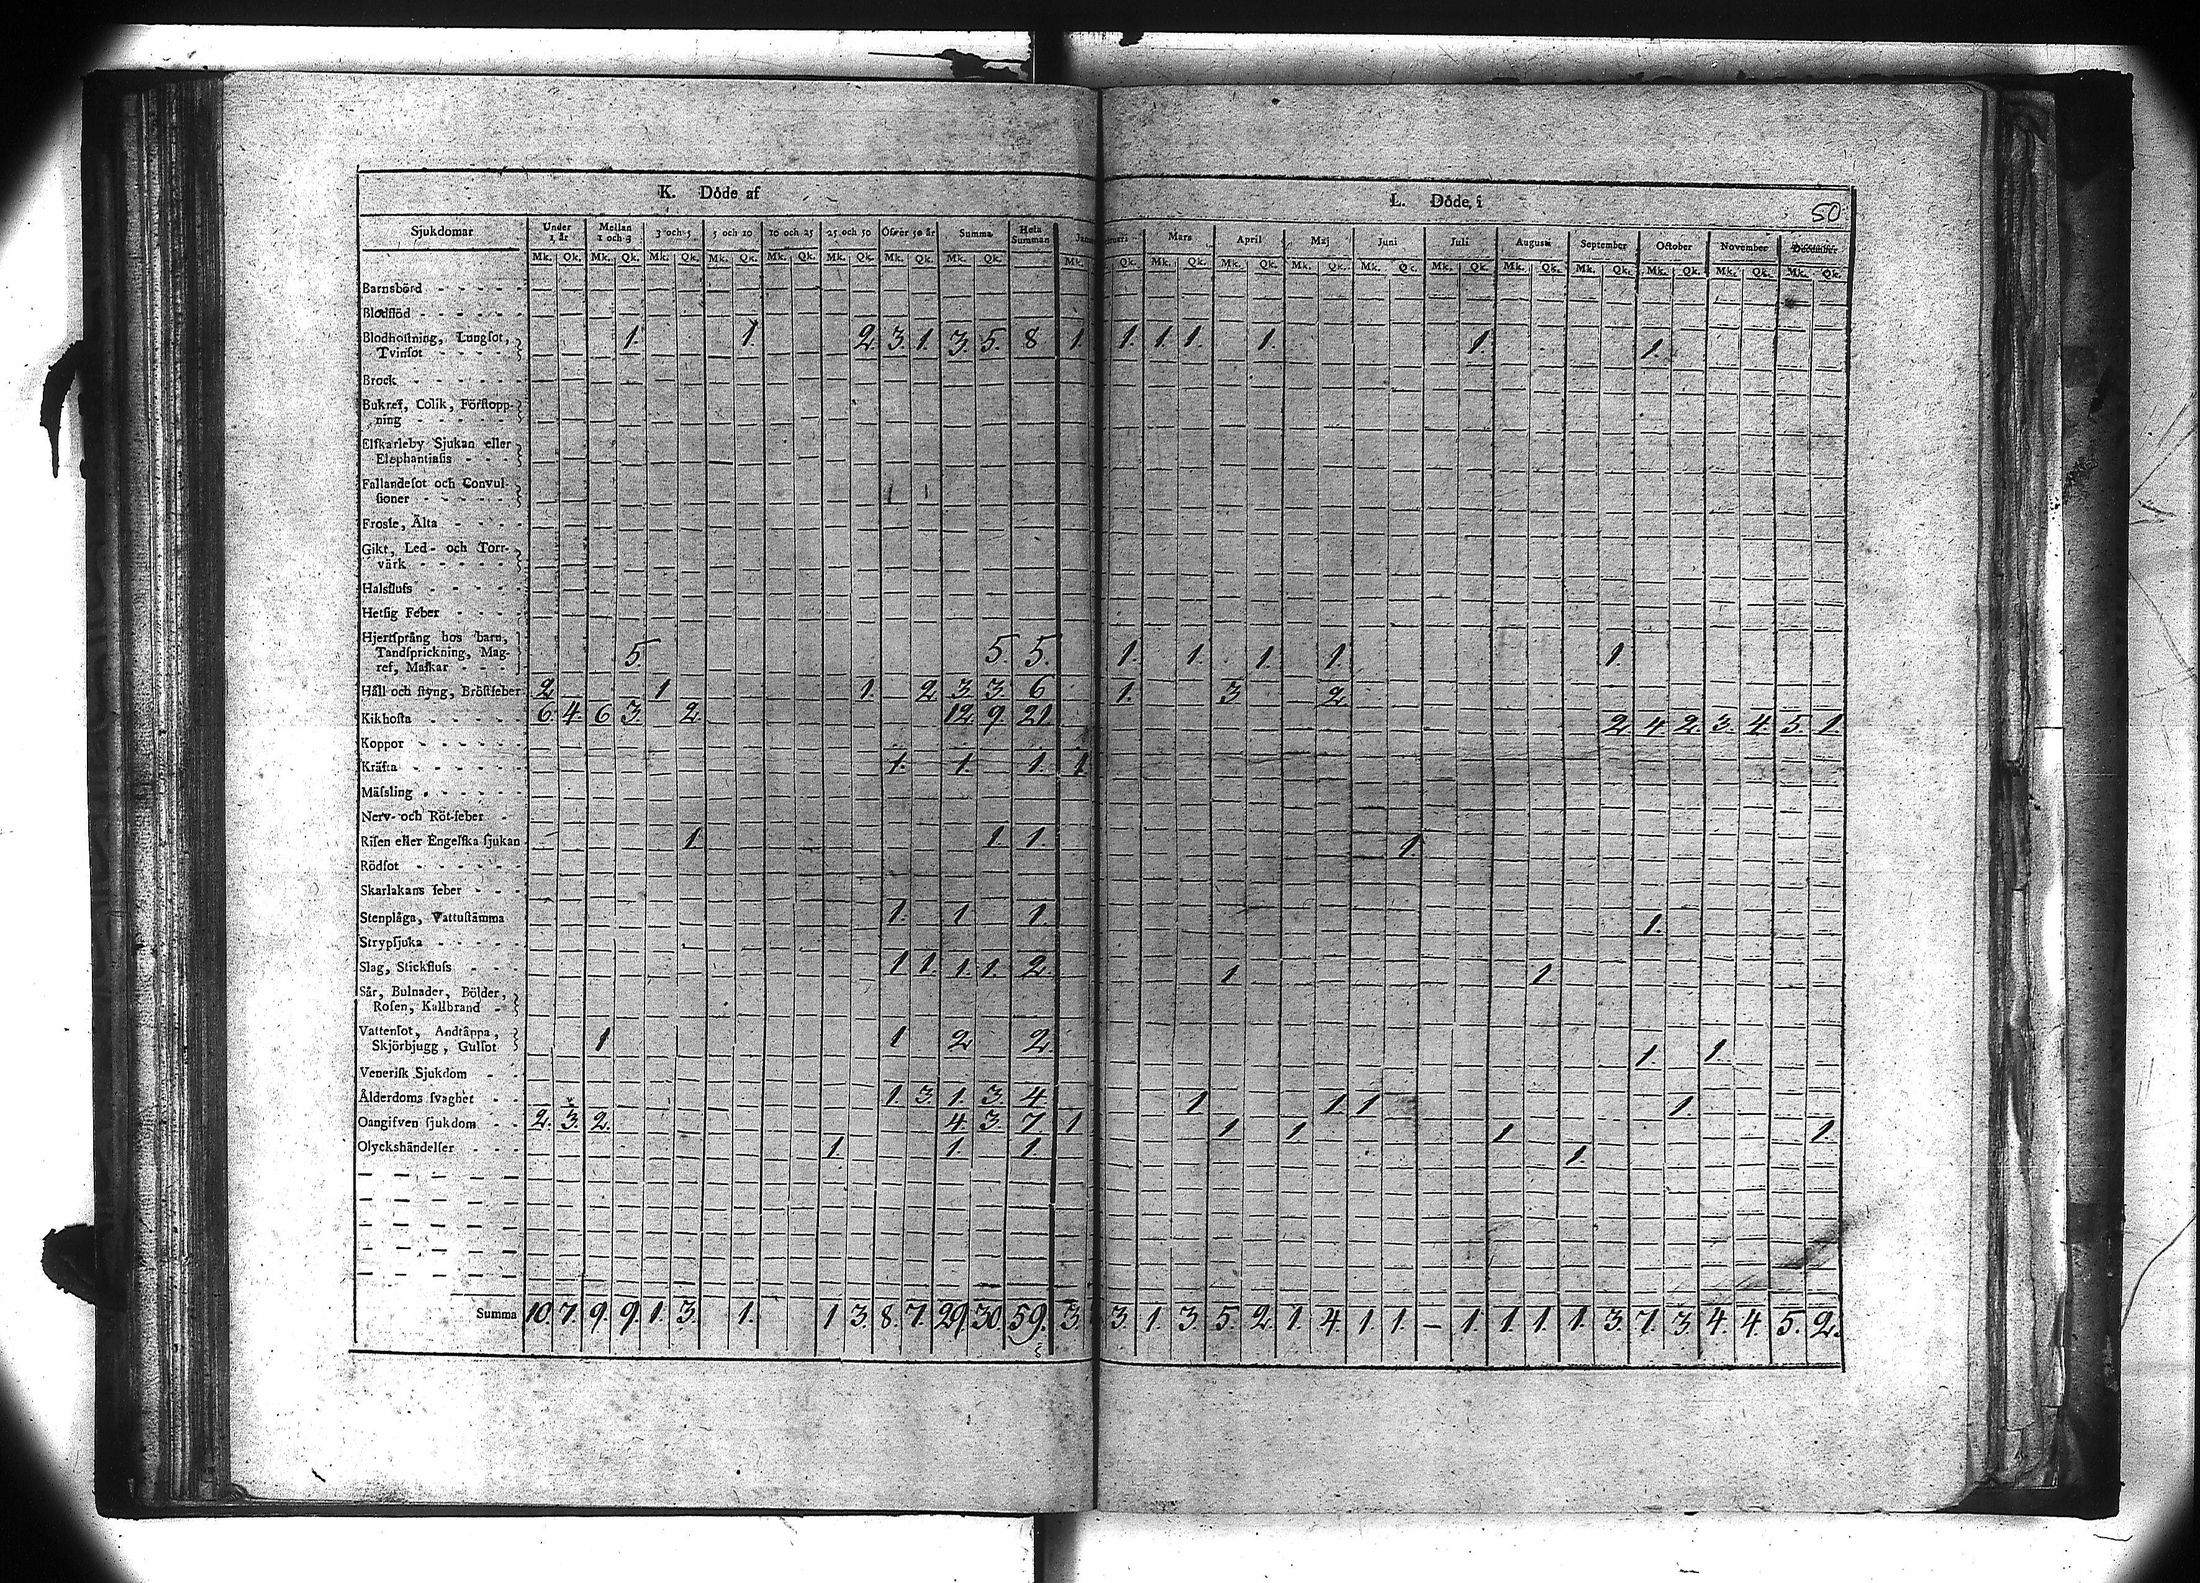 K. Döde af
L. Döde, i
50
Sjukdomar
Under 1 år Mellan 1 och 3 3 och 5 5 och 10 10 och 25 25 och 50 Öfver 50 år Summa Hela Summan
Mars April Maj Juni Juli Augusti September October November December
Mk. Qk. Mk. Qk. Mk. Qk. Mk. Qk. Mk. Qk. Mk. Qk. Mk. Qk. Mk. Qk. Mk.
Qk. Mk. Qk. Mk. Qk. Mk. Qk. Mk. Qk. Mk. Qk. Mk. Qk. Mk. Qk. Mk. Qk. Mk. Qk. Mk. Qk.
Barnsbörd
Blodflöd
Blodhoſtning, Lungſot,
Tvinſot 1. 1 2 3. 1. 3. 5. 8 1. 1. 1. 1. 1. 1. 1.
Brock
Bukref, Colik, Förſtopp-
ning
Elfkarleby Sjukan eller
Elephantiaſis
Fallandeſot och Convul-
ſioner 1 1
Froſſe, Älta
Gikt, Led- och Torr-
värk
Halsfluſs
Hetſig Feber
Hjertſprång hos barn,
Tandſprickning, Mag-
ref, Maſkar 5 5. 5. 1. 1. 1. 1. 1.
Håll och ſtyng, Bröſtfeber 2 1 1. 2 3 3. 6 1. 3 2
Kikhoſta 6. 4. 6 3. 2 12 9. 21 2 4 2. 3. 4. 5. 1.
Koppor
Kräfta 1. 1. 1. 1.
Mäſsling
Nerv- och Röt-feber
Riſen eller Engelſka ſjukan 1. 1 1. 1.
Rödſot
Skarlakans feber
Stenplåga, Vattuſtämma 1. 1. 1. 1.
Strypſjuka
Slag, Stickfluſs 1 1. 1. 1. 2. 1 1
Sår, Bulnader, Bölder,
Roſen, Kallbrand
Vattenſot, Andtäppa,
Skjörbjugg, Gulſot 1 1 2 2. 1. 1.
Veneriſk Sjukdom
Ålderdoms ſvaghet 1 3. 1. 3. 4. 1 1 1 1
Oangifven ſjukdom 2. 3. 2. 4. 3. 7 1 1 1 1 1.
Olyckshändelſer 1. 1. 1. 1.
Summa 10. 7. 9. 9. 1. 3. 1. 1 3. 8. 7. 29. 30 59. 3 3. 1. 3. 5. 2. 1. 4. 1 1. – 1. 1. 1. 1. 3. 7. 3. 4. 4. 5. 2.